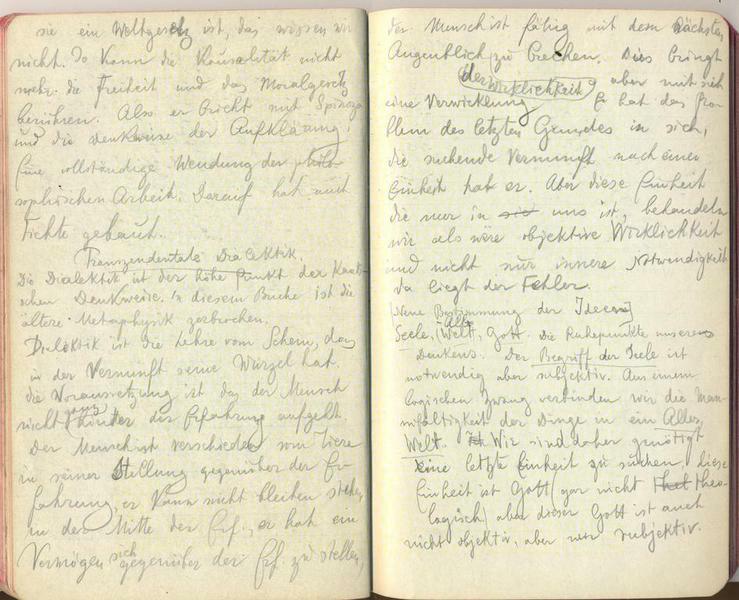 sie ein Weltgesetz ist, das wissen wir
nicht. So kann die Kausalität nicht
mehr die Freiheit und das Moralgesetz
berühren. Also er bricht mit Spinoza
und die Denkweise der Aufklärung!
Eine vollständige Wendung der philo-
sophischen Arbeit. Darauf hat auch
Fichte gebaut.
Transzendentale Dialektik.
Die Dialektik ist der höhe Punkt der Kanti-
schen Denkweise. In diesem Buche ist die
ältere Metaphysik zerbrochen.
Dialektik ist die Lehre vom Schein, das
in der Vernunft seine Wurzel hat.
die Voraussetzung ist das der Mensch
nicht hinter der Erfahrung aufgeht.
Der Mensch ist verschieden vom Tiere
in seiner Stellung gegenüber der Er-
fahrung, er kann nicht bleiben stehen
in der Mitte der Erf., er hat ein
Vermögen sich gegenüber der Erf. zu stellen,
der Mensch ist fähig mit dem nächsten
Augenblick zu brechen. Dies bringt
der Wirklichkeit aber mit sich
eine Verwicklung. Er hat das Pro-
blem des letzten Grundes in sich,
die suchende Vernunft nach einer
Einheit hat er. Aber diese Einheit
die nur in uns ist, behandeln
wir als wäre objektive Wirklichkeit
und nicht nur innere Notwendigkeit
da liegt der Fehler.
[Neue Bestimmung der Ideen]
Seele, Welt-Alle, Gott. Die Ruhepunkte unseres
Denkens. Der Begriff der Seele ist
notwendig aber subjektiv. Aus einem
logischen Zwang verbinden wir die Man-
nigfaltigkeit der Dinge in ein Alles,
Welt. Wir sind daher genötigt
eine letzte Einheit zu suchen, diese
Einheit ist Gott (gar nicht theo-
logisch) aber dieser Gott ist auch
nicht objektiv, aber nur subjektiv.